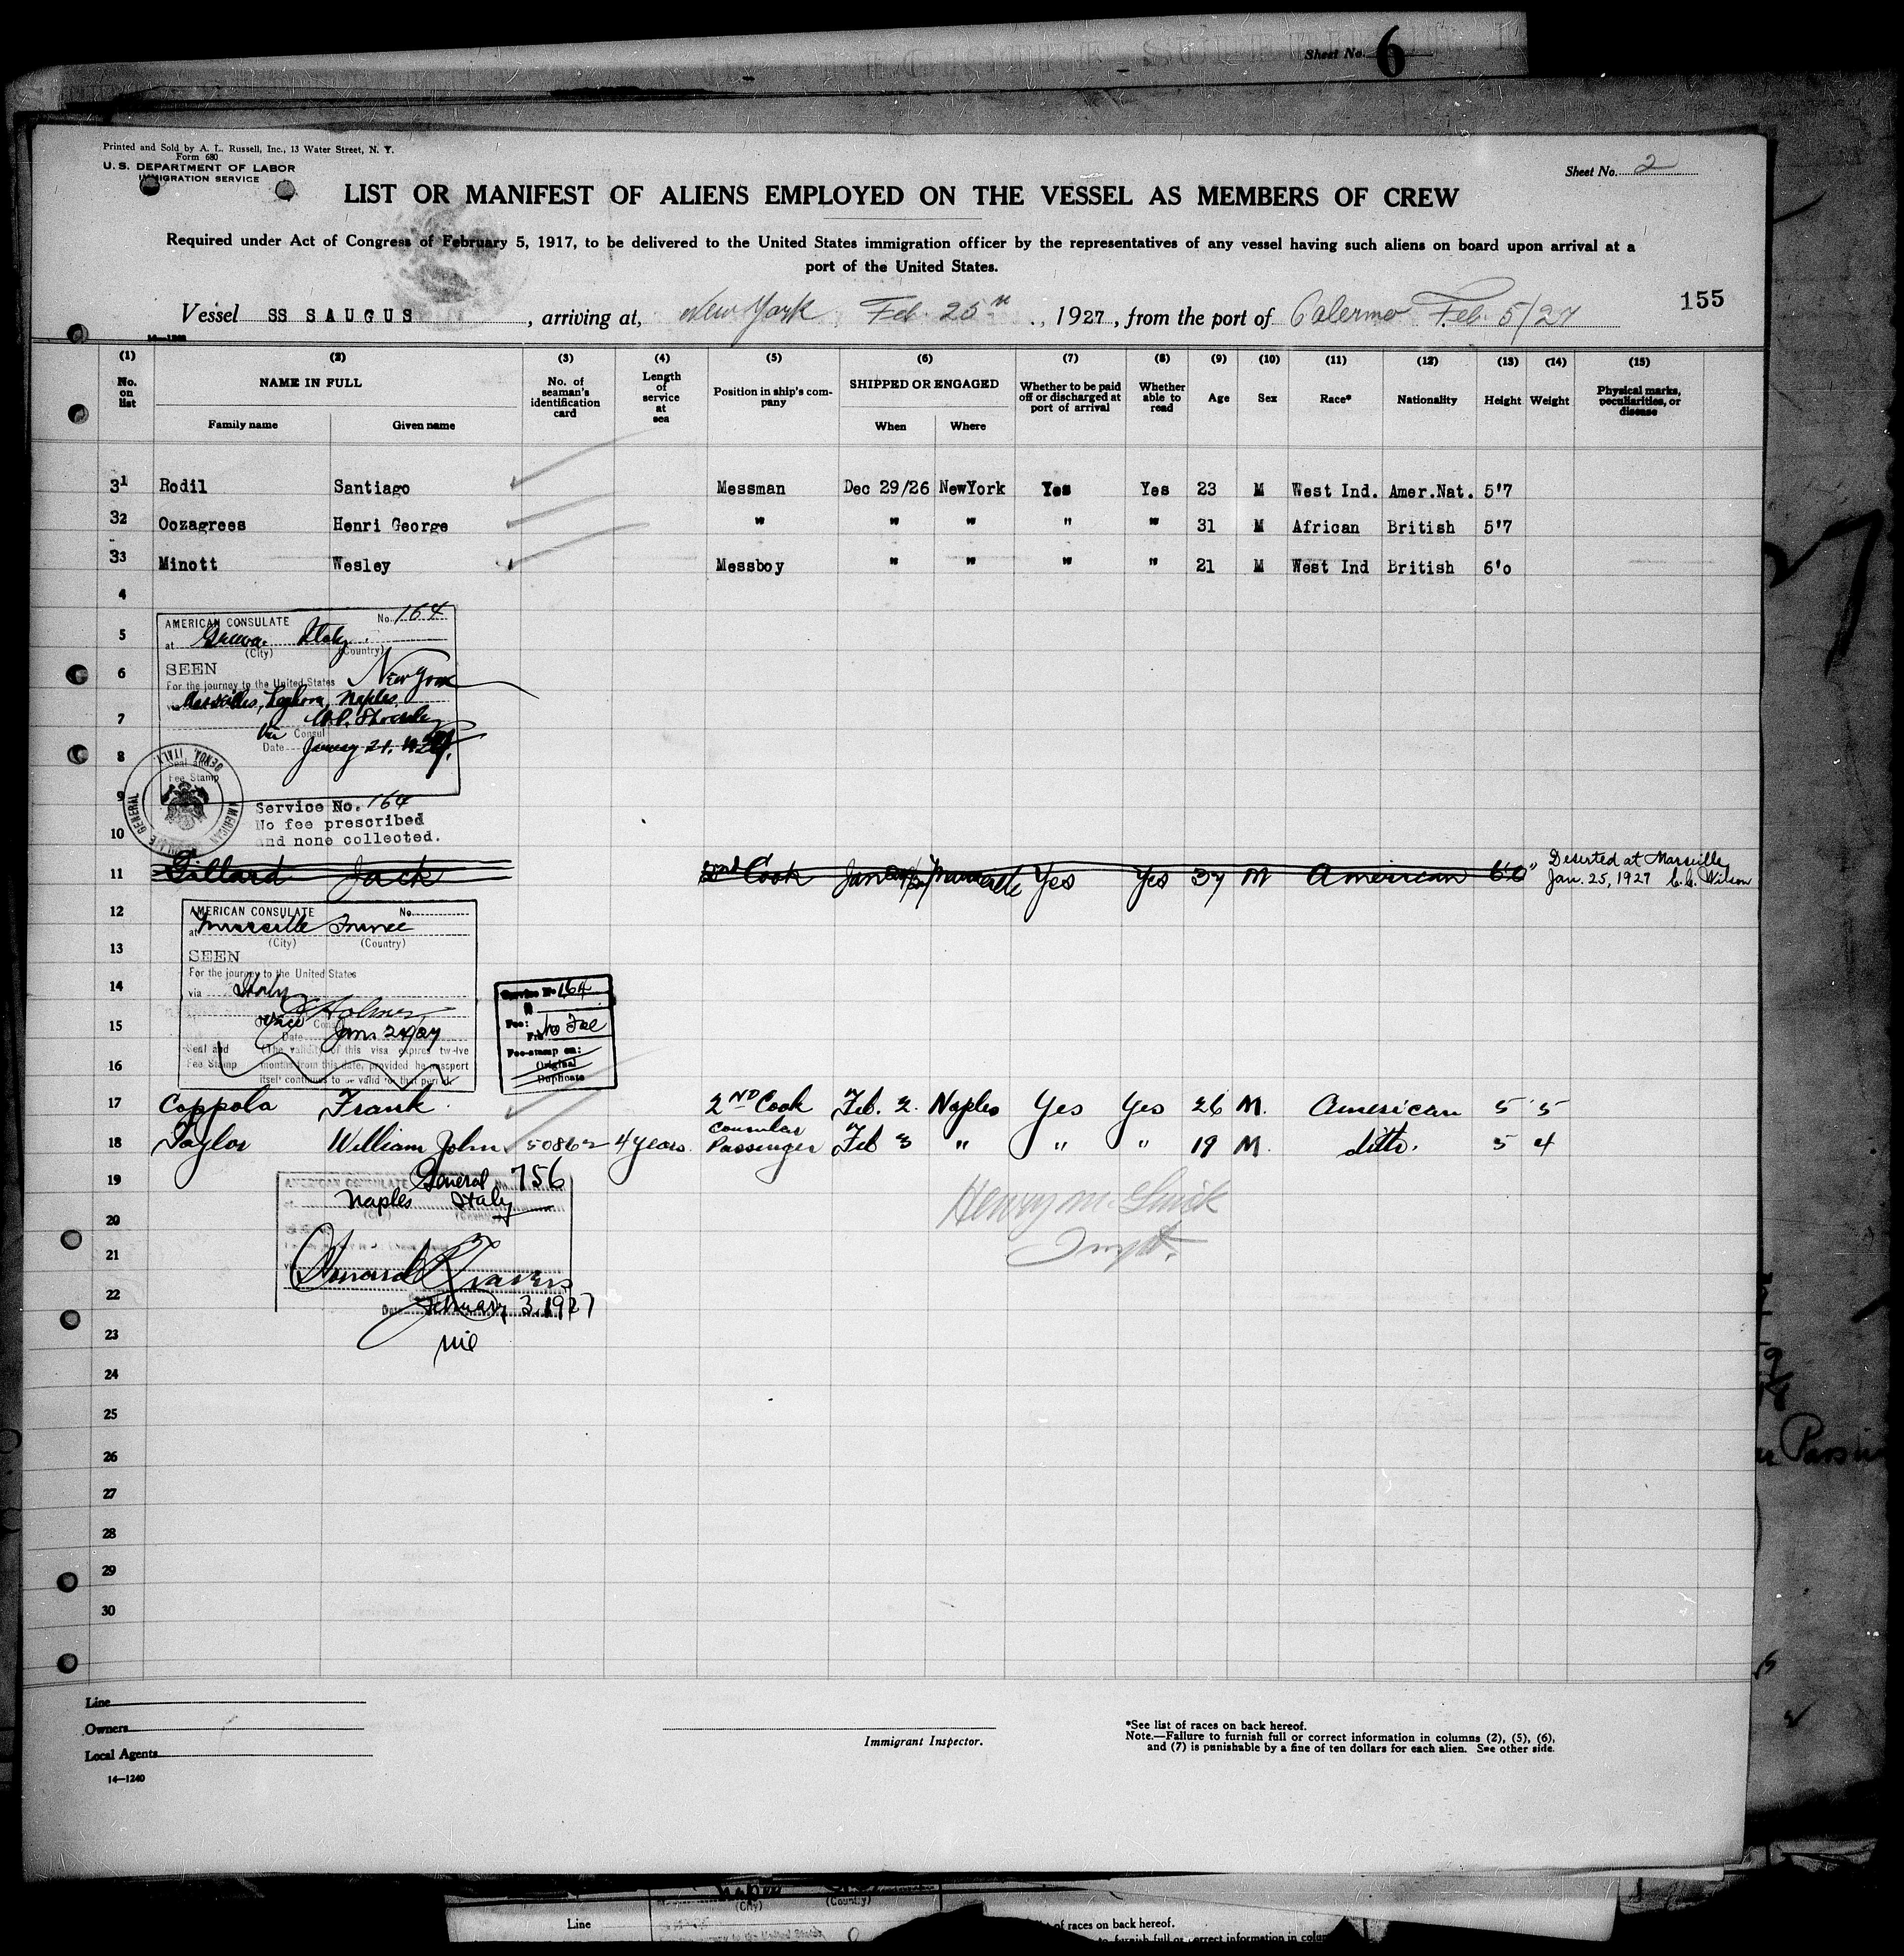 Sheet No. 6
Printed and Sold by A. L. Russell, Inc., 13 Water Street, N. Y.
Form 680
U. S. DEPARTMENT OF LABOR
IMMIGRATION SERVICE
Sheet No. 2
LIST OR MANIFEST OF ALIENS EMPLOYED ON THE VESSEL AS MEMBERS OF CREW
Required under Act of Congress of February 5, 1917, to be delivered to the United States immigration officer by the representatives of any vessel having such aliens on board upon arrival at a
port of the United States.
155
Vessel SS SAUGUS, arriving at, New York Feb. 25th, 1927, from the port of Palermo Feb. 5/27
(1) (2) (3) (4) (5) (6) (7) (8) (9) (10) (11) (12) (13) (14) (15)
No. on list NAME IN FULL Family name Given name No. of seaman's identification card Length of service at sea Position in ship's company SHIPPED OR ENGAGED When Where Whether to be paid off or discharged at port of arrival Whether able to read Age Sex Race* Nationality Height Weight Physical marks, peculiarities, or disease
31 Rodil Santiago Messman Dec 29/26 NewYork Yes Yes 23 M West Ind. Amer.Nat. 5'7
32 Oozagrees Henri George " " " " " 31 M African British 5'7
33 Minott Wesley Messboy " " " " 21 M West Ind British 6'0
4
AMERICAN CONSULATE No. 164
5
at Genoa Italy
(City) (Country)
6
SEEN
For the journey to the United States New York
Marseilles, Leghorn, Naples
7
Consul
8
Date January 21, 1927.
AMERICAN CONSULATE GENERAL GENOA, ITALY.
Fee Stamp
9
Service No. 164
No fee prescribed
10
and none collected.
11 Gillard Jack 2nd Cook Jan Marseille Yes Yes 37 M American 6'0" Deserted at Marseille
Jan. 25, 1927 C. C. Wilson
12
AMERICAN CONSULATE No.
at Marseille France
13
(City) (Country)
SEEN
For the journey to the United States
14
via Italy
Service No 164
Holmes
15
Vice Consul
Fee: No Fee
Date Jan. 24/27
Seal and (The validity of this visa expires twelve
Fee Stamp months from this date, provided he passport
itself continues to be valid for that period.
16
Fee-stamp on:
Original
Duplicate
17 Coppola Frank 2ND Cook Feb. 2. Naples Yes Yes 26 M. American 5 5
18 Taylor William John 50862 4 years. Consular Passenger Feb 3 " " " 19 M. ditto. 5 4
19
AMERICAN CONSULATE General No. 756
Naples Italy
(City) (Country)
20
Inspt.
21
Howard Travers
22
Date February 3, 1927
23
nil
24
25
26
27
28
29
30
Line
Owners
Local Agents
14—1240
Immigrant Inspector.
*See list of races on back hereof.
Note.—Failure to furnish full or correct information in columns (2), (5), (6),
and (7) is punishable by a fine of ten dollars for each alien. See other side.
(City) (Country)
Line
of races on back hereof.